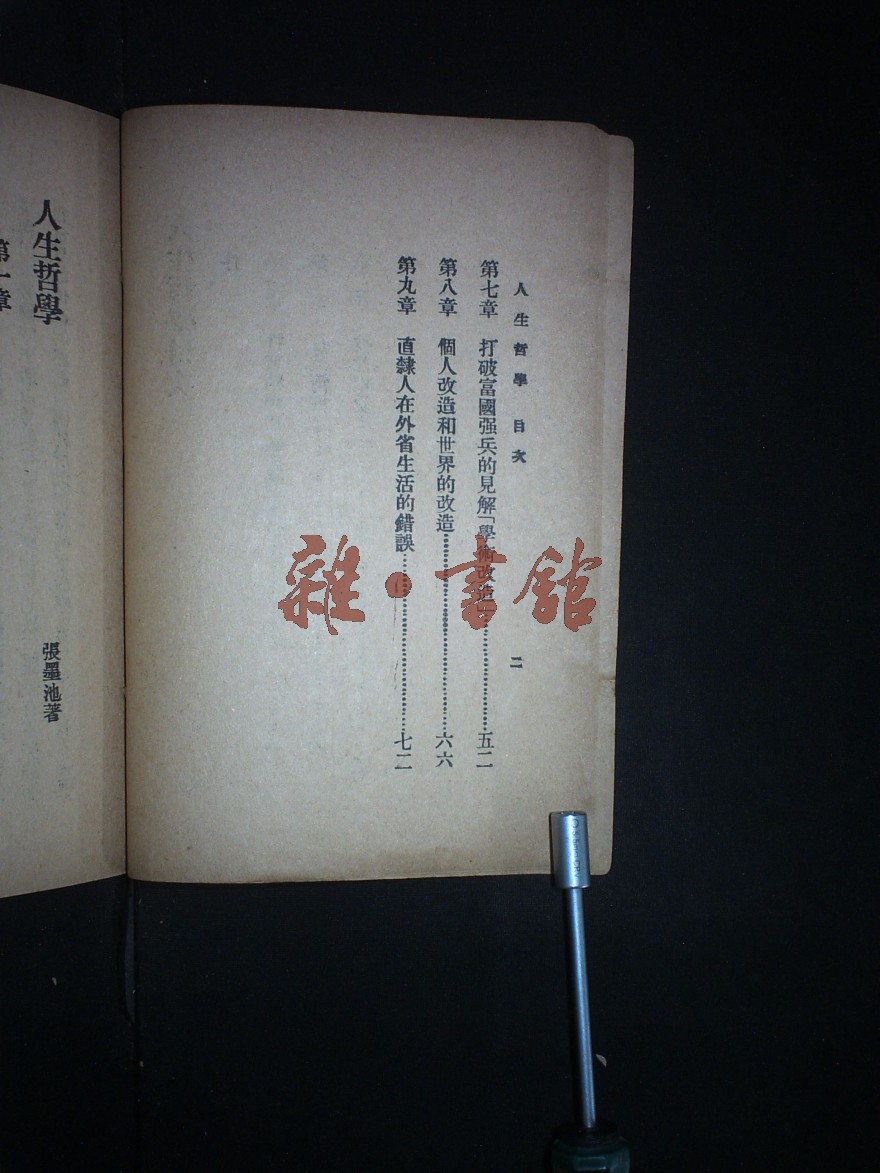 人生哲學 目次 二
第七章 打破富國强兵的見解「學術改造」……五二
第八章 個人改造和世界的改造……六六
第九章 直隸人在外省生活的錯誤……七二
人生哲學
張墨池著
第一章
雜·書館